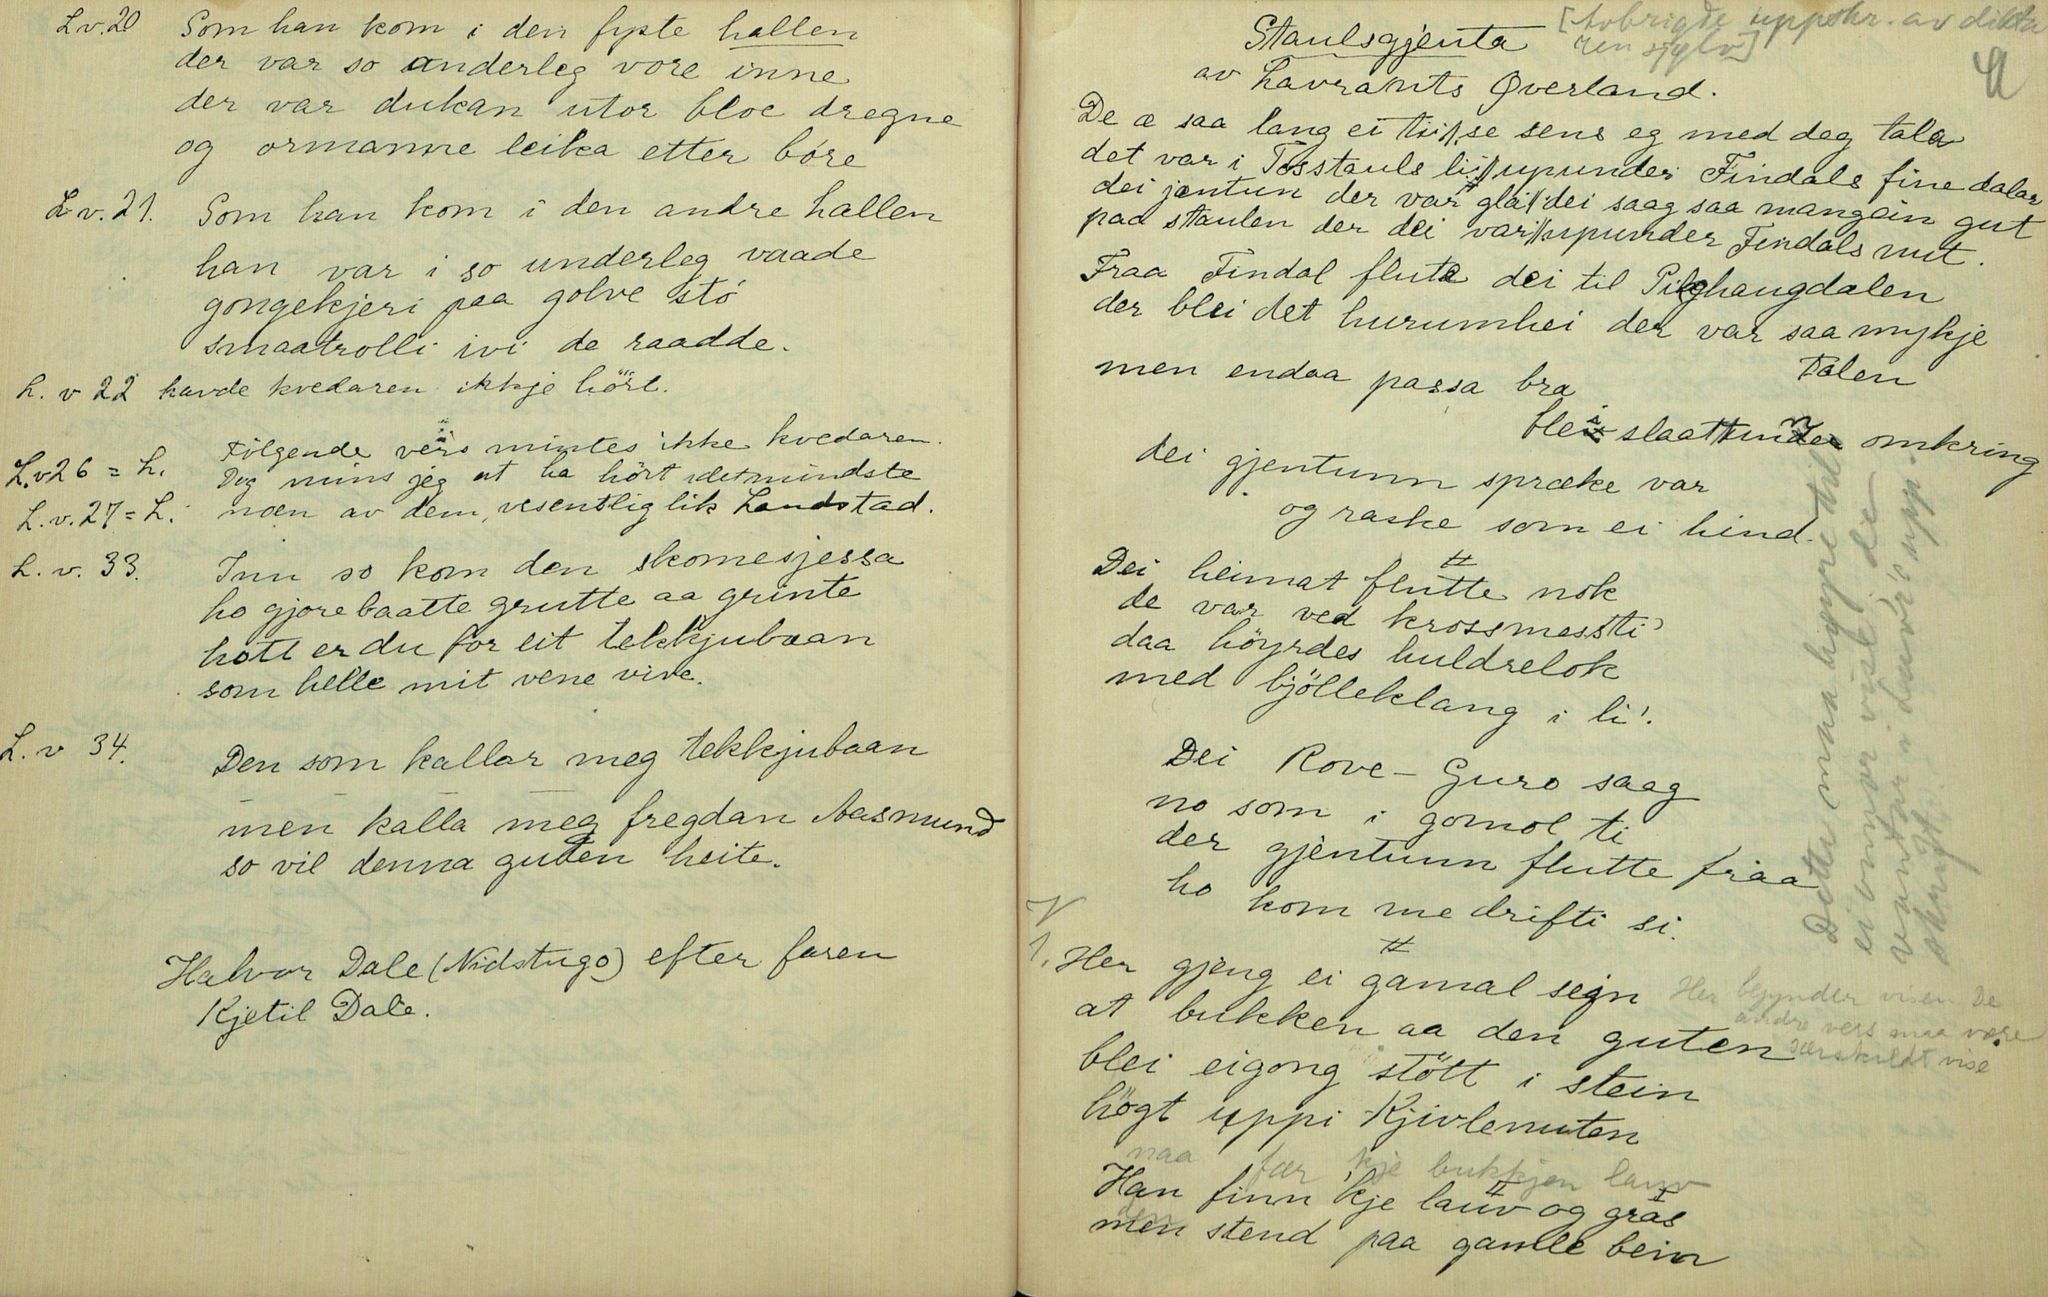 L v. 20 Som han kom i den fyste hallen
der var so underleg vore inne
der var dukan utor bloe dregne
og ormanne leika etter bóre
L v. 21. Som han kom i den andre hallen
han var i so underleg vaade
gongekjeri paa golve stó
smaatrolli ivi de raadde.
L. v 22 havde kvedaren ikkje hört.
Følgende vers mintes ikke kvedaren.
L.v26 = L. Dog mins jeg at ha hört idetmindste
L. v. 27 = L. noen av dem, vesentlig lik Landstad.
L. v. 33. Inn so kom den skomesjessa
ho gjore baatte grutte aa grinte
hott er du for eit tekkjubaan
som helle mit vene vive.
L. v 34. Den som kallar meg tekkjubaan
— — —
men kalla meg fregdan Aasmund
so vil denna guten heite.
Halvor Dale (Nidstugo) efter faren
Kjetil Dale.
Staulsgjenta [Avbrigde uppskr. av dikta
ren sjølv]
av Lavrants Øverland.
De æ saa lang ei ti // se sens eg med deg tala
det var i Tosstauls li // upunder Findals fine dalar
dei jentun der var gla // dei saag saa mangein gut
paa staulen der dei var // upunder Findals nut.
Fraa Findal flute dei til Pighaugdalen
der blei det hurumhei der var saa mykje
talen
men endaa passa bra
blei slaattun omkring
dei gjentunn spræke var
og raske som ei hind.
Dei heimat flutte nok
de var ved krossmessti'
daa höyrdes huldrelok
med bjölleklang i li'.
Dei Rove-Guro saag
no som i gomol ti
der gjentunn flutte fraa
ho kom me drifti si.
Dette maa høyre til
ei onnor visi, den
vantar i
skrift.
V
1. Her gjeng ei gamal segn
Her begynder visen. De
andre vers maa være
særskildt vise
at bukken aa den guten
blei eigong stött i stein
högt uppi Kjivlenuten
naa fær kje bukkjen lauv
Han finn kje lauv og gras
men stend paa gamle bein